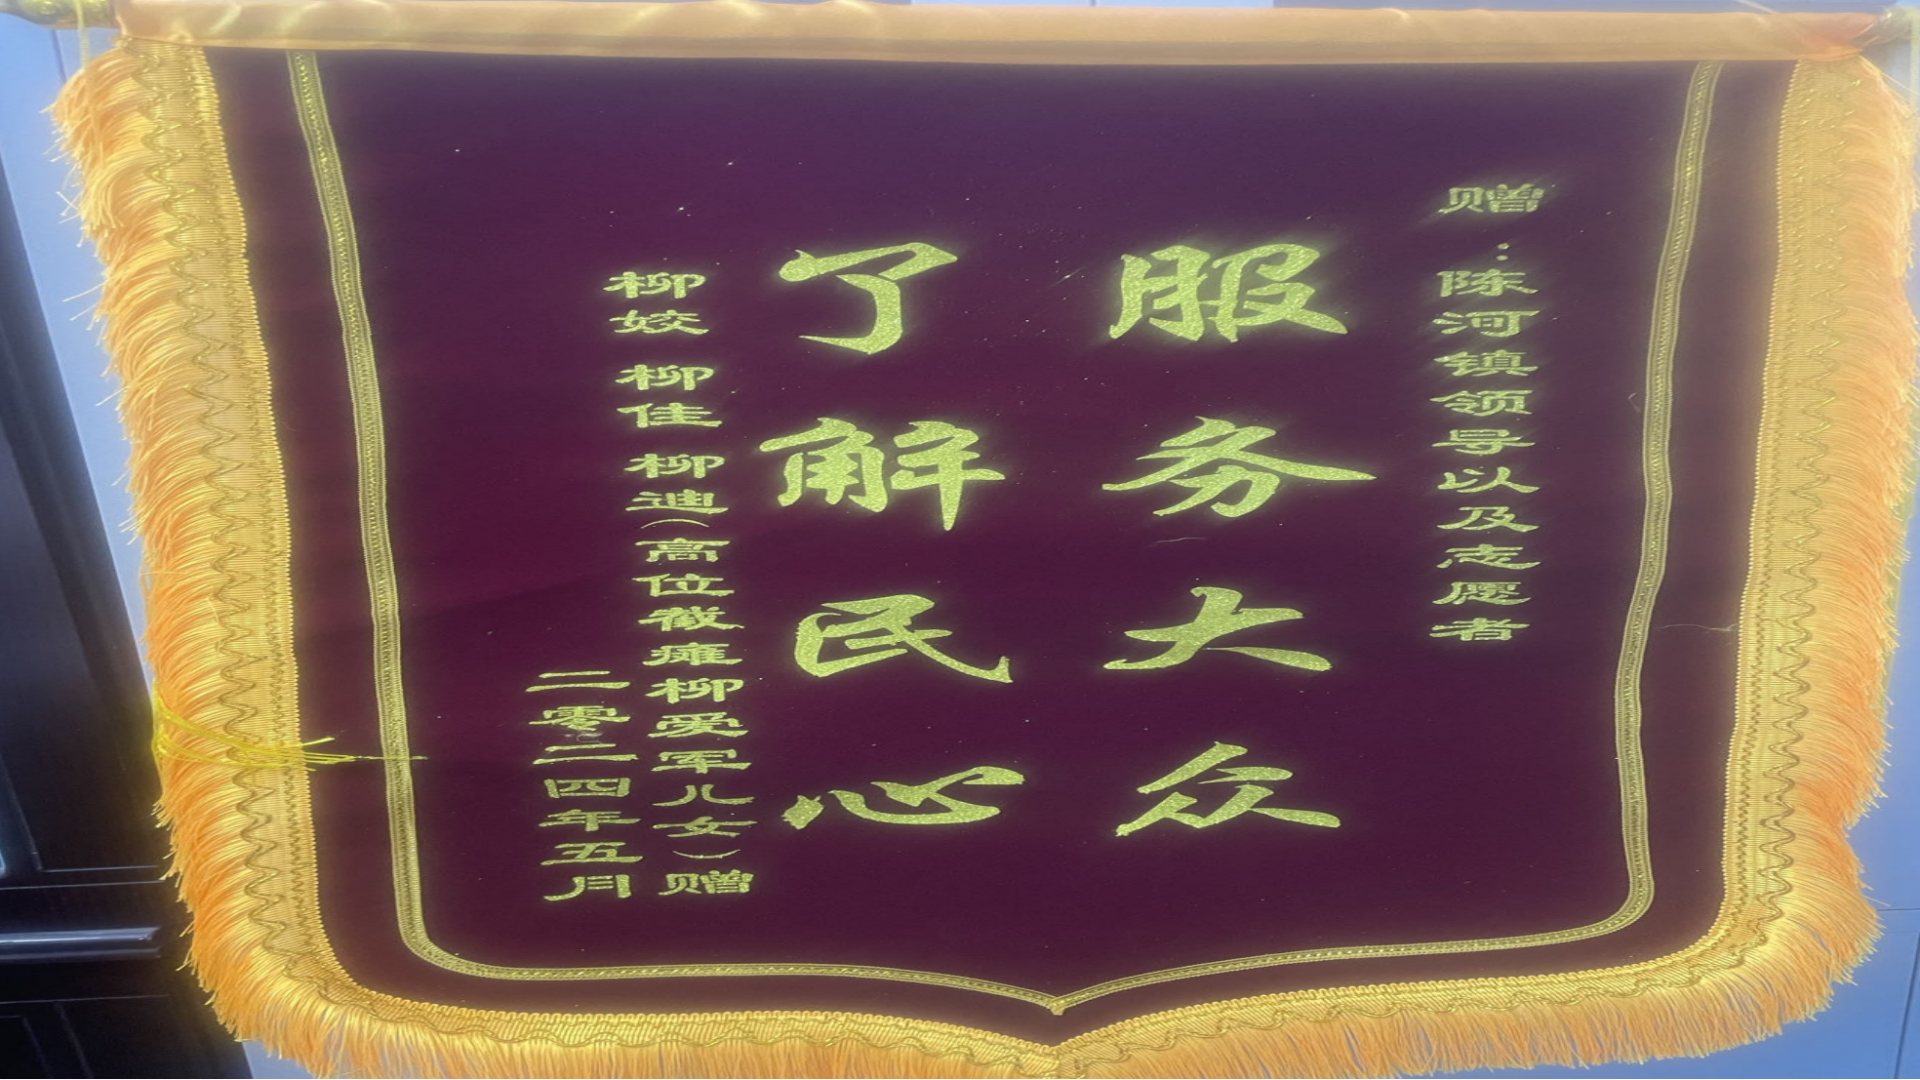 赠：陈河镇领导以及志愿者
服务大众
了解民心
柳姣 柳佳 柳迪（高位截瘫柳爱军儿女）赠
二零二四年五月